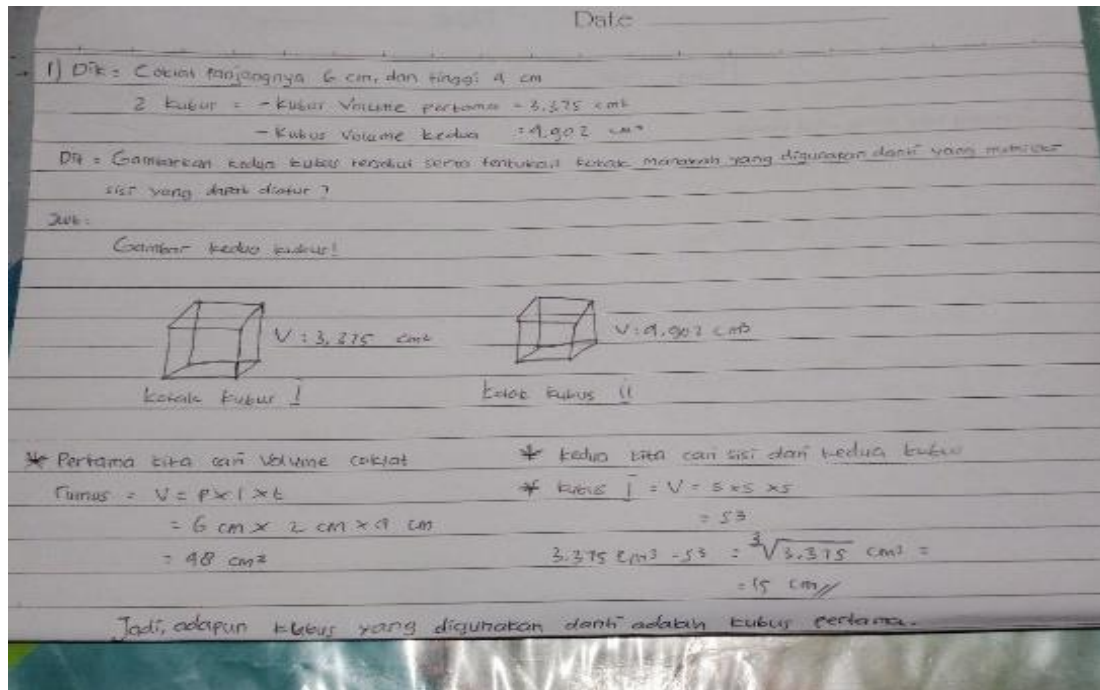 Date
1) Dik = Coklat panjangnya 6 cm, dan tinggi 4 cm
2 kubus = - kubus Volume pertama = 3.375 cm³
- Kubus Volume kedua = 4.902 cm³
Dit = Gambarkan kedua kubus tersebut serta tentukan kotak manakah yang digunakan danti yang memiliki
sisi yang dapat diatur ?
Jwb :
Gambar kedua kubus!
V : 3.375 cm²
V : 4.902 cm³
kotak kubus I
kotak kubus II
* Pertama kita cari Volume coklat
Rumus = V = P x l x t
= 6 cm x 2 cm x 4 cm
= 48 cm²
* kedua kita cari sisi dari kedua kubus
* kubus I = V = s x s x s
= s3
3.375 cm3 - s3 = ³√3.375 cm³ =
= 15 cm//
Jadi, adapun kubus yang digunakan danti adalah kubus pertama.